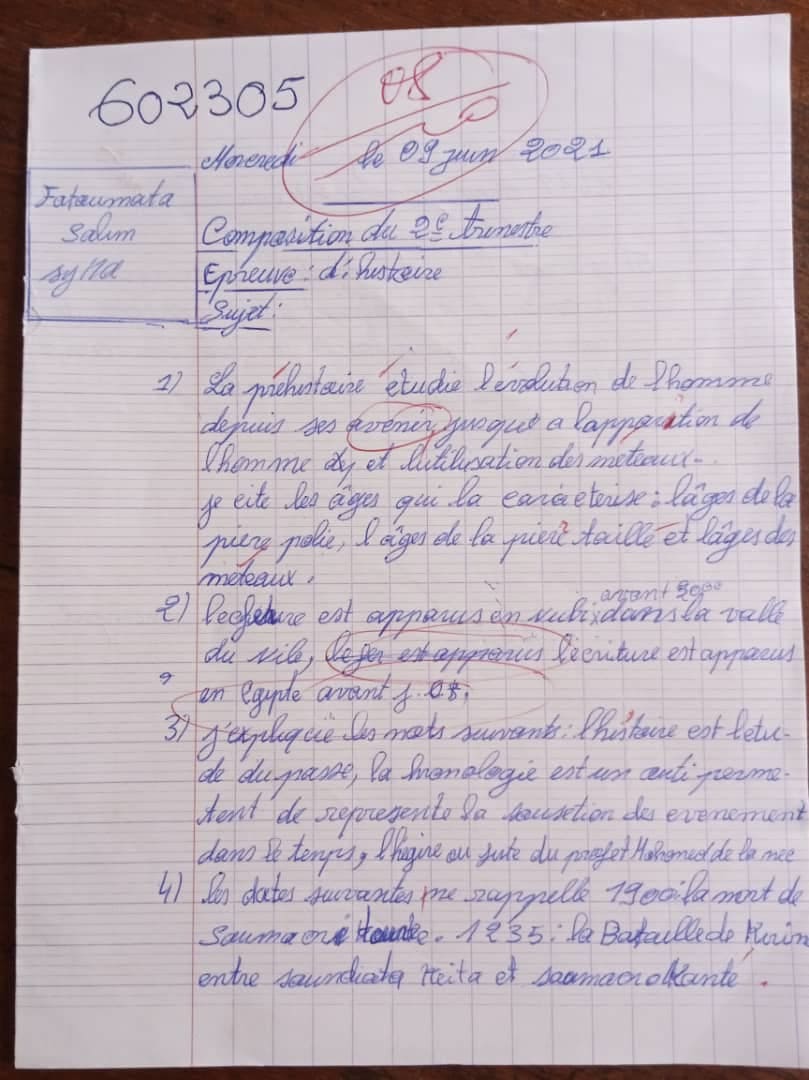 602305
08
20
Mercredi le 09 juin 2021
Fatoumata
Salim
sylla
Composition du 2e trimestre
Epreuve : d'histoire
Sujet :
1) La préhistoire étudie l'évolution de l'homme
depuis ses avenir, jusque a l'apparition de
l'homme et l'utilisation des méteaux.
je cite les âges qui la caractérise : l'âges de la
piere polie, l'âges de la piere taillé et l'âges des
méteaux.
avant 2000
2) est apparus en nubi, dans la vallé
du nile, le fer est apparus l'écriture est apparus
en Egypte avant j.
3) j'explique les mots suivants : l'histoire est l'étu-
de du passe, la hronologie est un outi perme-
tent de represente la sousetion des evenement
dans le temps, l'hegire ou fute du profet Mohomed de la mee
4) les dates suivantes me rappelle 1900 : la mort de
. 1235 : la Bataille de Kirin
entre soundiata Keita et soumaoro Kanté.